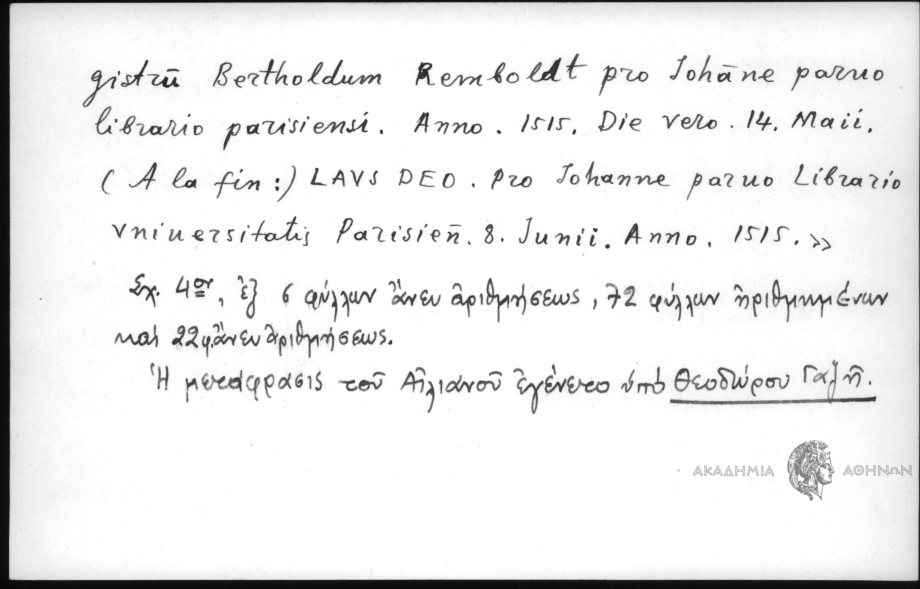 gistrū Bertholdum Remboldt pro Iohāne paruo
librario parisiensi. Anno. 1515. Die vero. 14. Maii.
(A la fin:) LAVS DEO. Pro Iohanne paruo Librario
vniuersitatis Parisien̄. 8. Junii. Anno. 1515. »
Σχ. 4ον, ἐξ 6 φύλλων ἄνευ ἀριθμήσεως, 72 φύλλων ἠριθμημένων
καὶ 22 φ. ἄνευ ἀριθμήσεως.
Ἡ μετάφρασις τοῦ Αἰλιανοῦ ἐγένετο ὑπὸ Θεοδώρου Γαζῆ.
ΑΚΑΔΗΜΙΑ ΑΘΗΝΩΝ